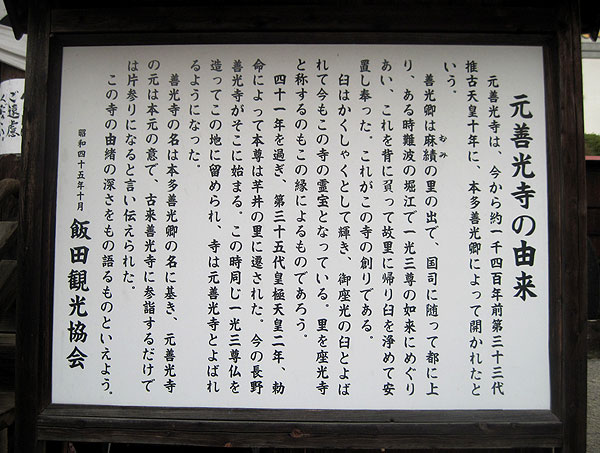 元善光寺の由来
元善光寺は、今から約一千四百年前第三十三代
推古天皇十年に、本多善光卿によって開かれたと
いう。
善光卿は麻績の里の出で、国司に随って都に上
むみ
り、ある時難波の堀江で一光三尊の如来にめぐり
あい、これを背に負って故里に帰り臼を浄めて安
置し奉った。これがこの寺の創りである。
臼はかくしゃくとして輝き、御座光の臼とよば
れて今もこの寺の霊宝となっている。里を座光寺
と称するのもこの縁によるものであろう。
四十一年を過ぎ、第三十五代皇極天皇二年、勅
命によって本尊は芋井の里に遷された。今の長野
善光寺がそこに始まる。この時同じ一光三尊仏を
造ってこの地に留められ、寺は元善光寺とよばれ
るようになった。
善光寺の名は本多善光卿の名に基き、元善光寺
の元は本元の意で、古来善光寺に参詣するだけで
は片参りになると言い伝えられた。
この寺の由緒の深さをもの語るものといえよう。
昭和四十五年十月
飯田観光協会
ご遠慮